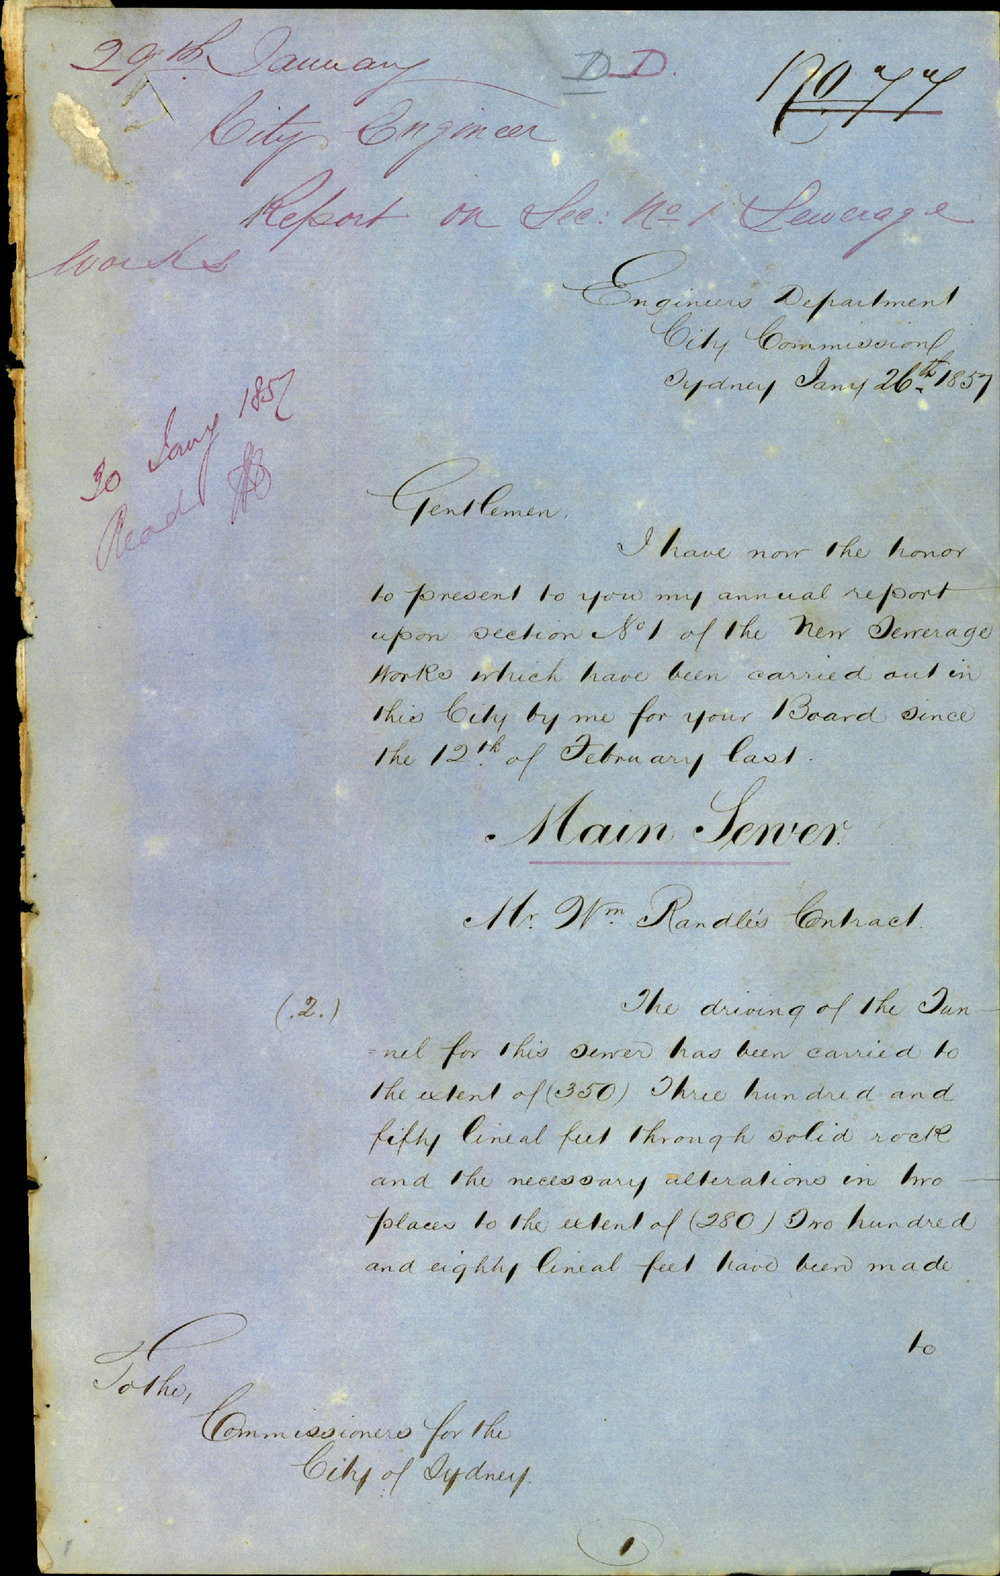 29th January
D.D.
No 77
City Engineer
Report on Sec: No 1 Sewerage
Works
Engineers Department
City Commission
Sydney Jany 26th 1857
30 Jany 1857
Read
Gentlemen,
I have now the honor
to present to you my annual report
upon section No 1 of the New Sewerage
Works which have been carried out in
this City by me for your Board since
the 12th of February last.
Main Sewer.
Mr. Wm Randle's Contract.
(.2.) The driving of the Tun-
=nel for this sewer has been carried to
the extent of (350) Three hundred and
fifty lineal feet through solid rock
and the necessary alterations in two
places to the extent of (280) Two hundred
and eighty lineal feet have been made
to
To the,
Commissioners for the
City of Sydney.
1